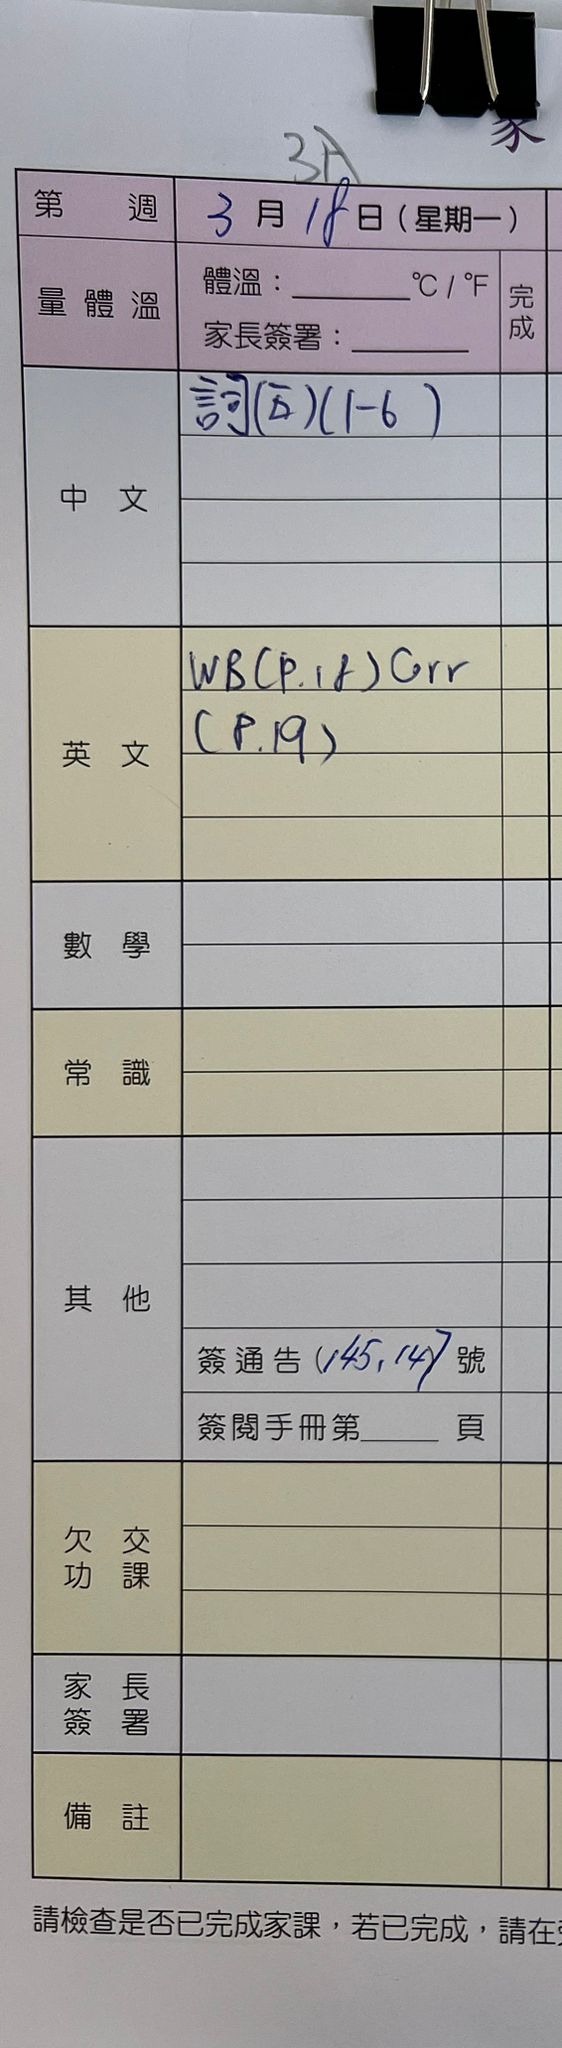 家
3A
第 週 3月18日(星期一)
量體溫 體溫：______℃/℉ 完成
家長簽署：______
中文 詞(五)(1-6)
英文 WB(P.18)Corr
(P.19)
數學
常識
其他
簽通告(145,147號
簽閱手冊第____頁
欠交
功課
家長
簽署
備註
請檢查是否已完成家課，若已完成，請在